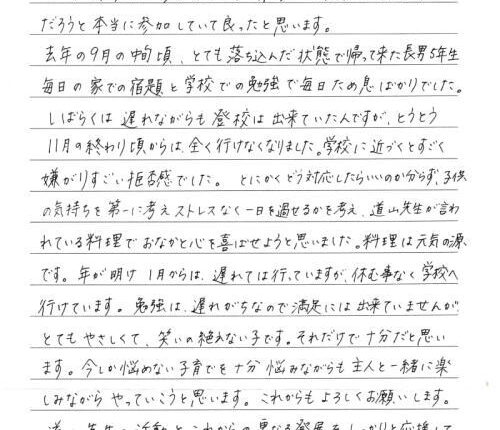 だろうと本当に参加していて良ったと思います。
去年の9月の中旬頃、とても落ち込んだ状態で帰って来た長男5年生
毎日の家での宿題と学校での勉強で毎日ため息ばかりでした。
しばらくは遅れながらも登校は出来ていたんですが、とうとう
11月の終わり頃からは、全く行けなくなりました。学校に近づくとすごく
嫌がりすごい拒否感でした。とにかくどう対応したらいいのか分らず、子供
の気持ちを第一に考えストレスなく一日を過せるかを考え、道山先生が言わ
れている料理でおなかと心を喜ばせようと思いました。料理は元気の源
です。年が明け1月からは、遅れては行っていますが、休む事なく学校へ
行けています。勉強は、遅れがちなので満足には出来ていませんが、
とてもやさしくて、笑いの絶えない子です。それだけで十分だと思い
ます。今しか悩めない子育てを十分悩みながらも主人と一緒に楽
しみながらやっていこうと思います。これからもよろしくお願いします。